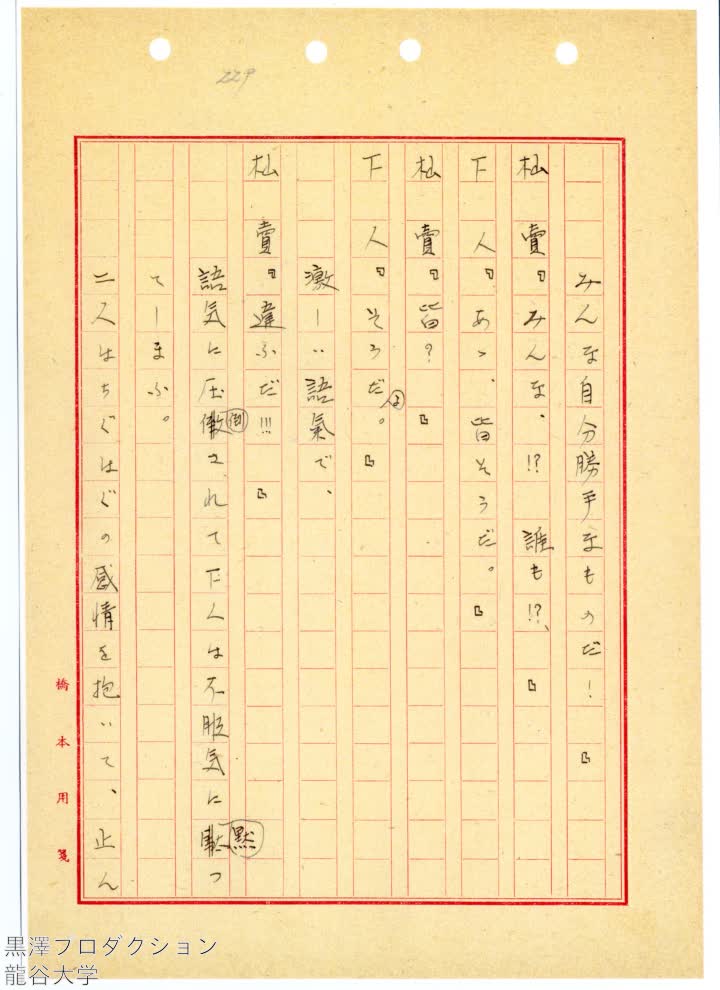 229
みんな自分勝手なものだ！』
杣賣『みんな、!? 誰も!?、』
下人『あゝ、皆そうだ。』
杣賣『皆？』
下人『そうだよ。』
激しい語氣で、
杣賣『違ふだ!!!』
語気に圧倒されて下人は不服気に黙つ
てしまふ。
二人はちぐはぐの感情を抱いて、止ん
橋本用箋
黒澤プロダクション
龍谷大学